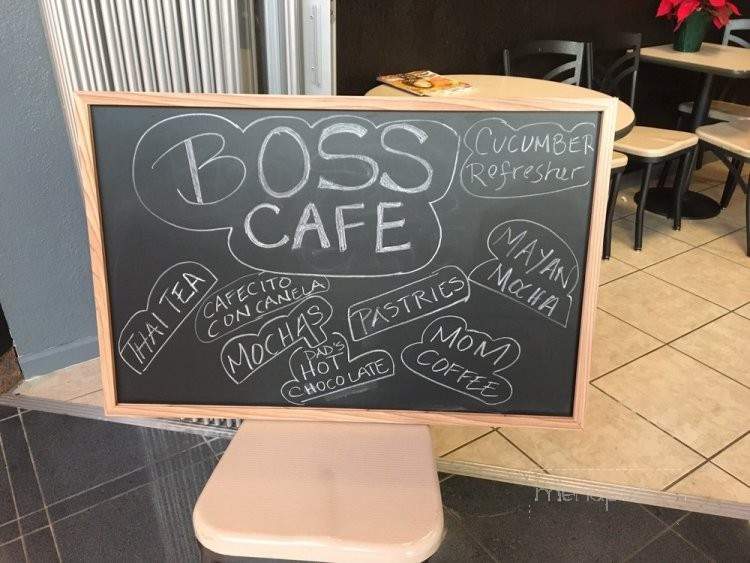 BOSS
CAFE
CUCUMBER
Refresher
MAYAN
MOCHA
THAI TEA
CAFECITO
CON CANELA
MOCHAS
PASTRIES
DAD'S
HOT
CHOCOLATE
MOM
COFFEE